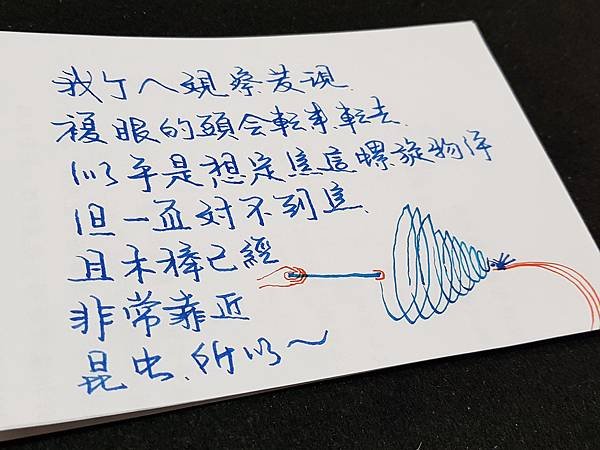 我个人観察发现.
複眼的頭会転来転去.
似乎是想定焦這螺旋物件
但一直対不到焦.
且木棒已經
非常靠近
昆虫.所以～